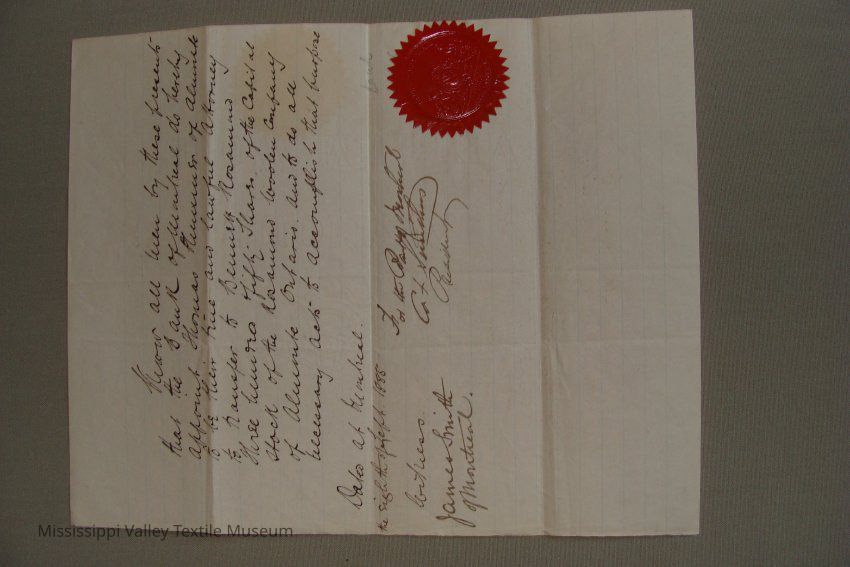 Know all men by these presents
that the Bank of Montreal do hereby
appoint Thomas of Almonte
to be their true and lawful attorney
to transfer to Bennett Rosamond
three hundred & fifty Shares of the Capital
Stock of the Rosamond Woolen Company
of Almonte Ontario. and to do all
necessary acts to accomplish that purpose
Dated at Montreal.
the Sept. 1885
Witness. For the Bank of Montreal
James Smith
of Montreal. President
Mississippi Valley Textile Museum